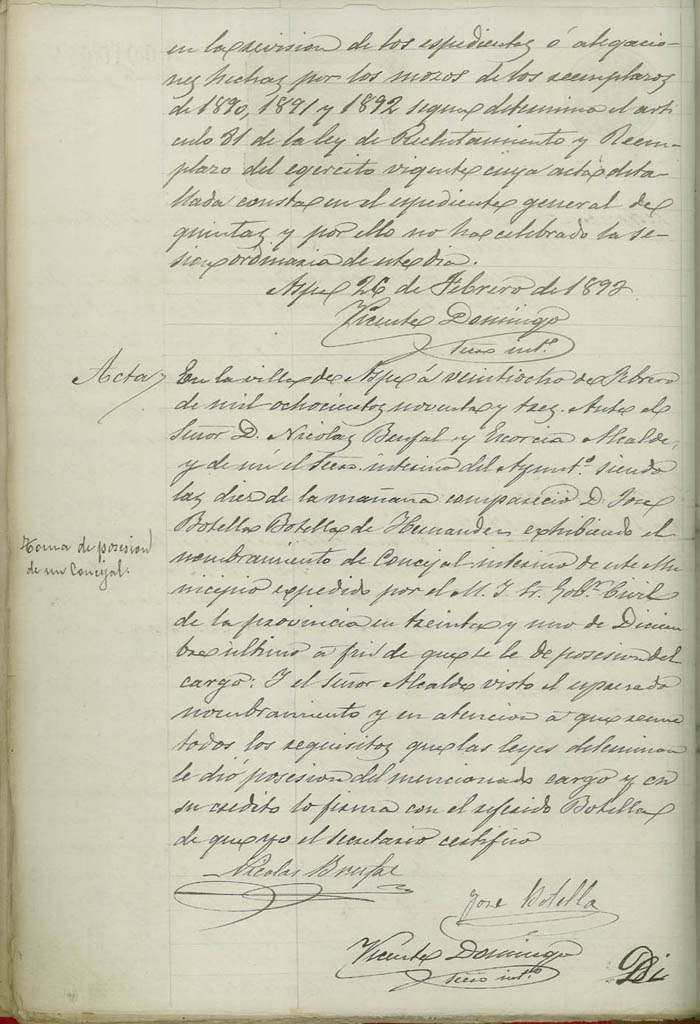 en la revision de los espedientes ó alegacio-
nes hechas por los mozos de los reemplazos
de 1890, 1891 y 1892 segun determina el arti
culo 81 de la ley de Reclutamiento y Reem-
plazo del egercito vigente cuya acta deta
llada consta en el espediente general de
quintas y por ello no ha celebrado la se-
sion ordinaria de este dia.
Aspe 26 de Febrero de 1893
Vicente Domingo
Secro intº.
Acta
En la villa de Aspe á veintiocho de Febrero
de mil ochocientos noventa y tres. Ante el
Señor D. Nicolas Brufal y Escorcia Alcalde,
y de mi el Secro. interino del Ayuntº. siendo
las diez de la mañana comparecio D. Jose
Botella Botella de Hernandez exhibiendo el
Toma de posesion
de un Concejal.
nombramiento de Concejal interino de este Mu
nicipio expedido por el M. I. Sr. Gobr. Civil
de la provincia en treinta y uno de Diciem
bre último á fin de que se le de posesion del
cargo: Y el Señor Alcalde visto el espresado
nombramiento y en atencion á que reune
todos los requisitos que las leyes determinan
le dió posesion del mencionado cargo y en
su credito lo firma con el referido Botella
de que yo el secretario certifico
Nicolas Brufal
Jose Botella
Vicente Domingo
Secro intº.